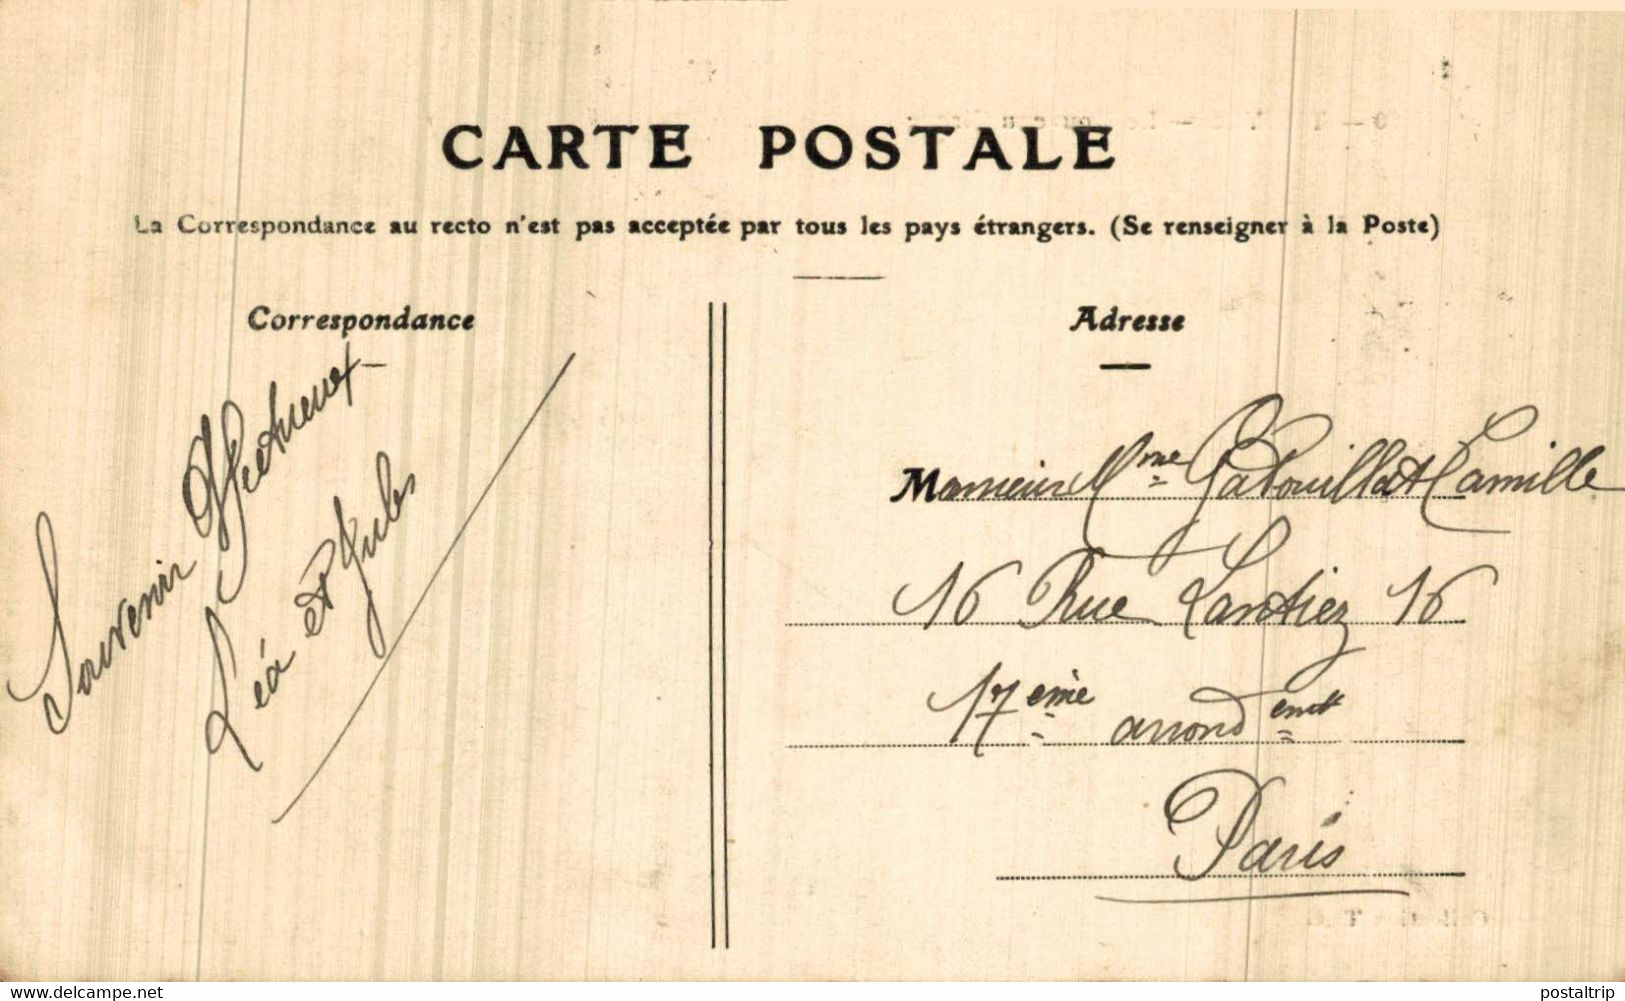 CARTE POSTALE
La Correspondance au recto n'est pas acceptée par tous les pays étrangers. (Se renseigner à la Poste)
Correspondance
Souvenir Affectueux
Léa et Jules
Adresse
Monsieur Mme Gabouillat Camille
16 Rue Lantiez 16
17ème arrondemt
Paris
www.delcampe.net
postaltrip